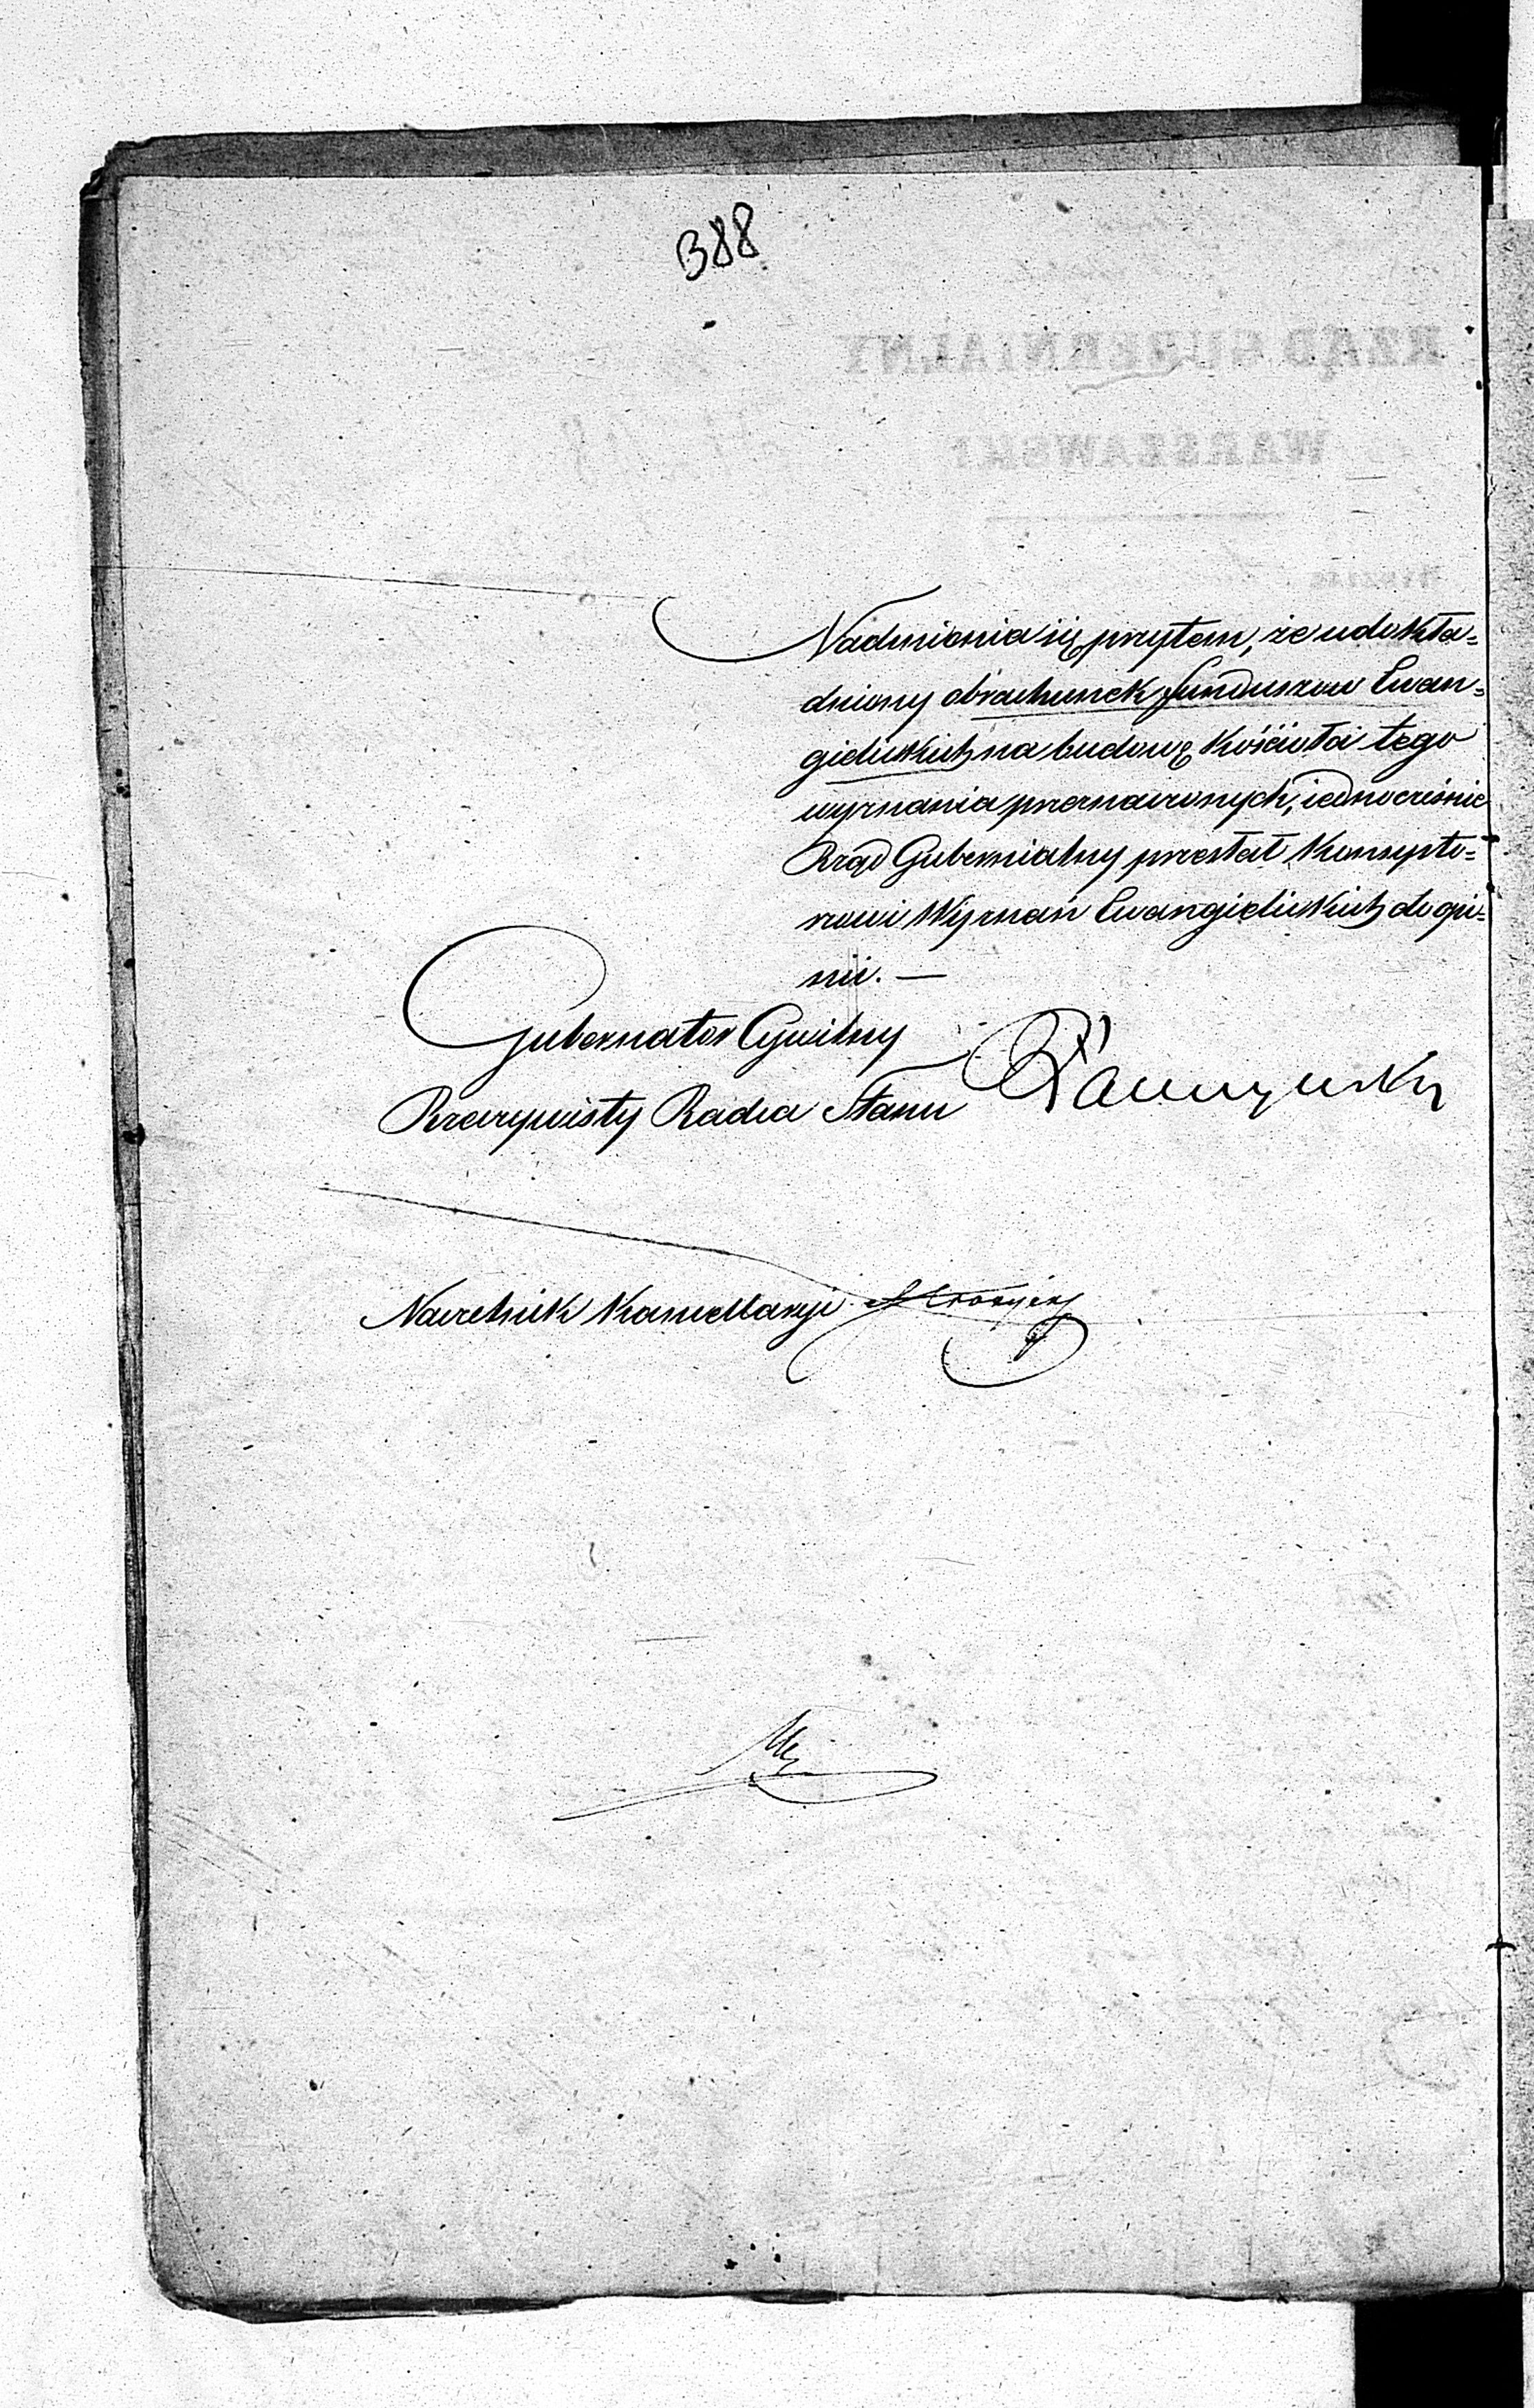 388
Nadmienia się przytem, że udokła=
dniony obrachunek funduszow Ewan=
gielickich na budowę Kościoła tego
wyznania przeznaczonych, iednocześnie
Rząd Gubernialny przesłał Konsysto=
rzowi Wyznań Ewangielickich do opi=
nii. —
Gubernator Cywilny
Rzeczywisty Radca Stanu
Naczelnik Kancellaryi